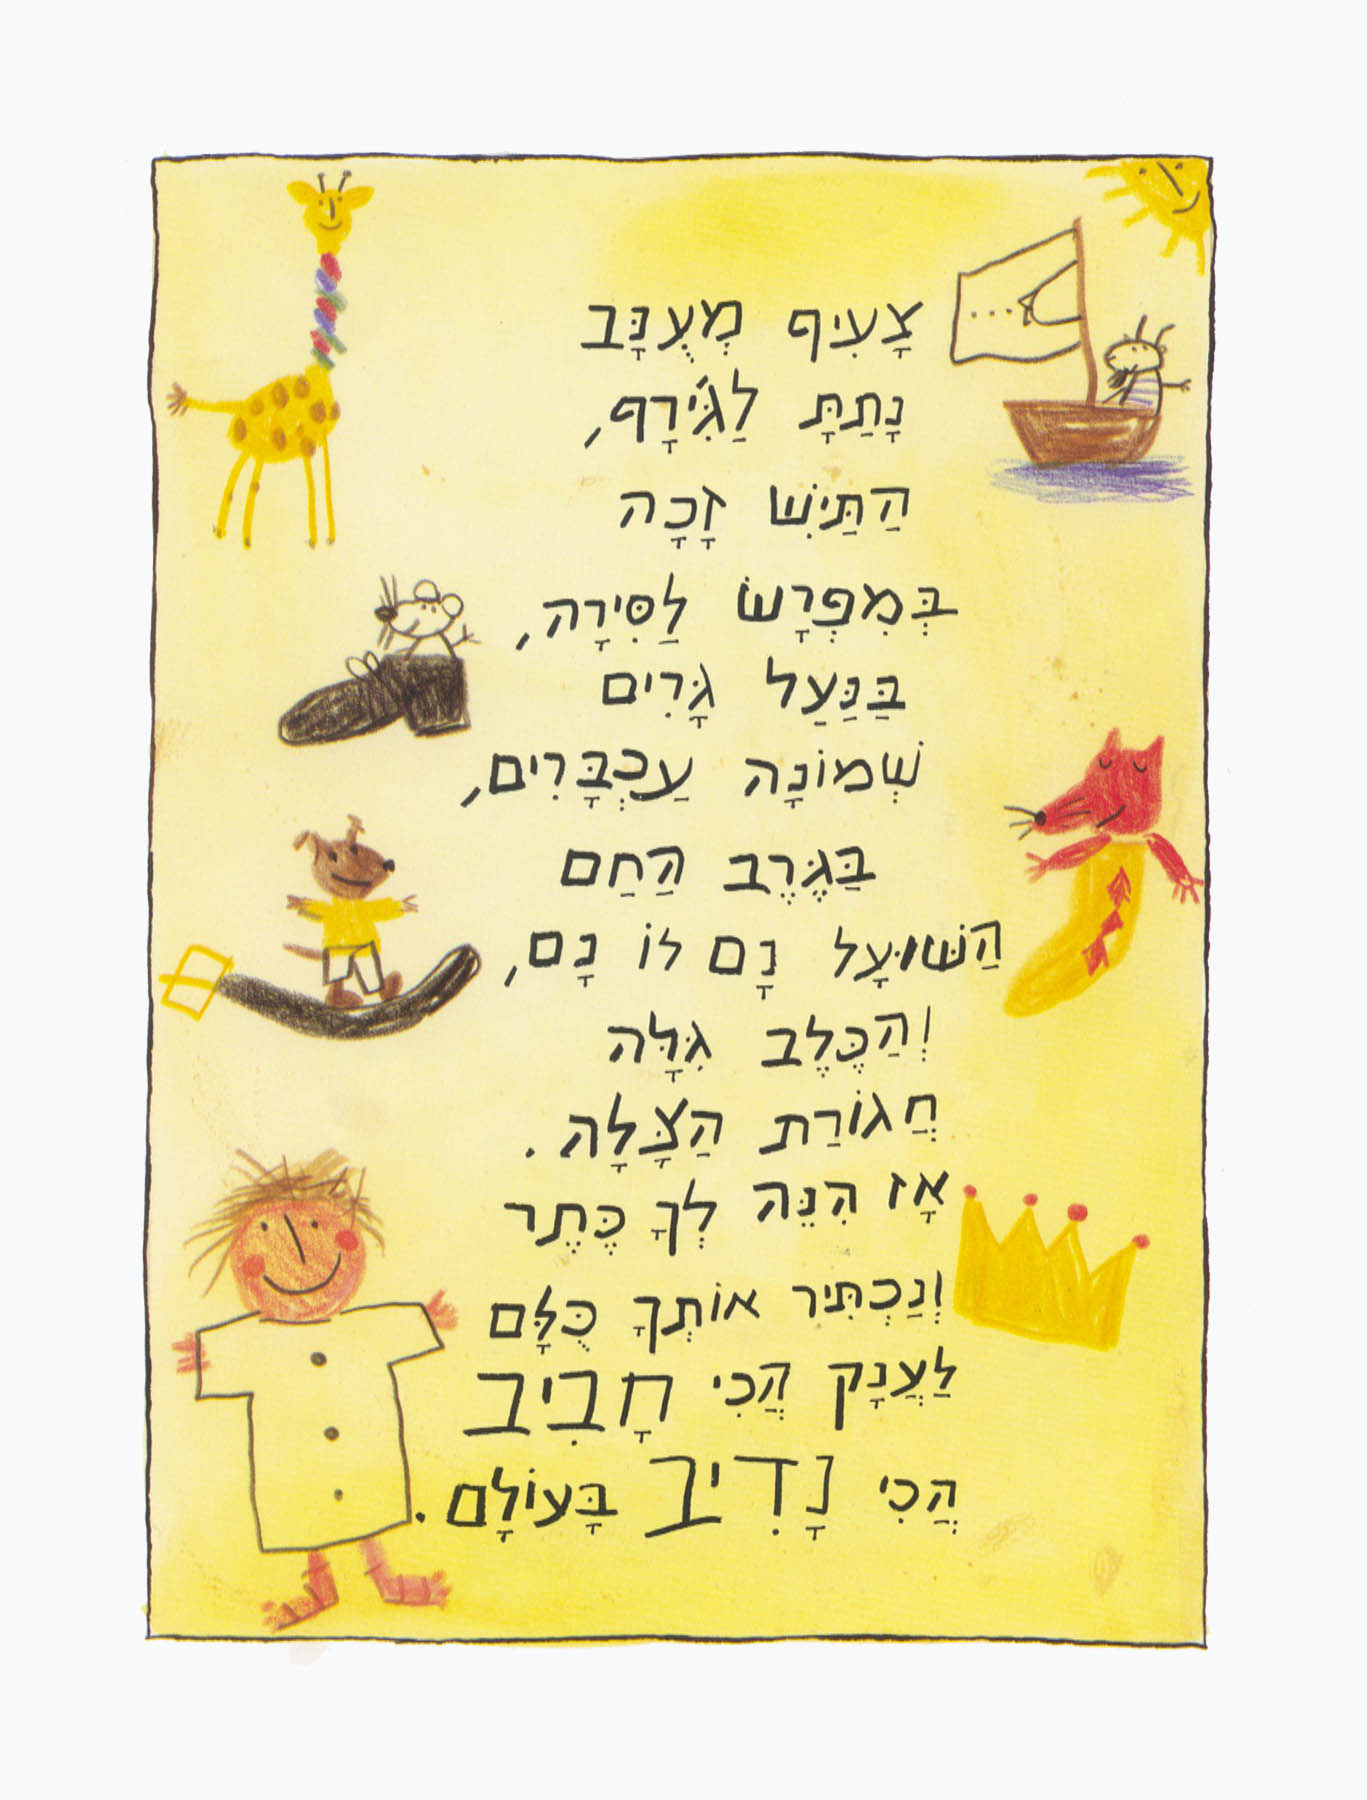 צָעִיף מְעֻנָּב
נָתַתָּ לַגִּ'ירָף,
הַתַּיִשׁ זָכָה
בְּמִפְרָשׂ לַסִּירָה,
בַּנַּעַל גָּרִים
שְׁמוֹנָה עַכְבָּרִים,
בַּגֶּרֶב הַחַם
הַשּׁוּעָל נָם לוֹ נָם,
וְהַכֶּלֶב גִּלָּה
חֲגוֹרַת הַצָּלָה.
אָז הִנֵּה לְךָ כֶּתֶר
וְנַכְתִּיר אוֹתְךָ כֻּלָּם
לַעֲנָק הֲכִי חָבִיב
הֲכִי נָדִיב בָּעוֹלָם.